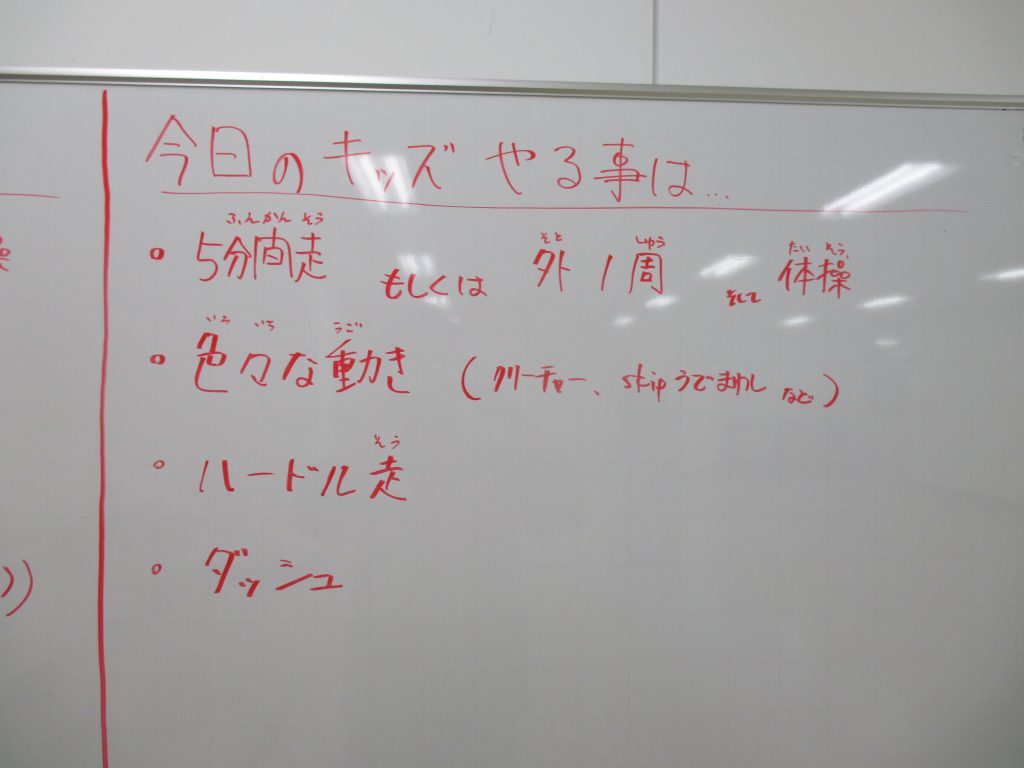 今日のキッズやる事は...
ふんかんそう そと しゅう たいそう
・5分間走 もしくは 外1周 そして 体操
いろいろ うご
・色々な動き (クリーチャー、skipうでまわし など)
そう
・ハードル走
・ダッシュ
操
))